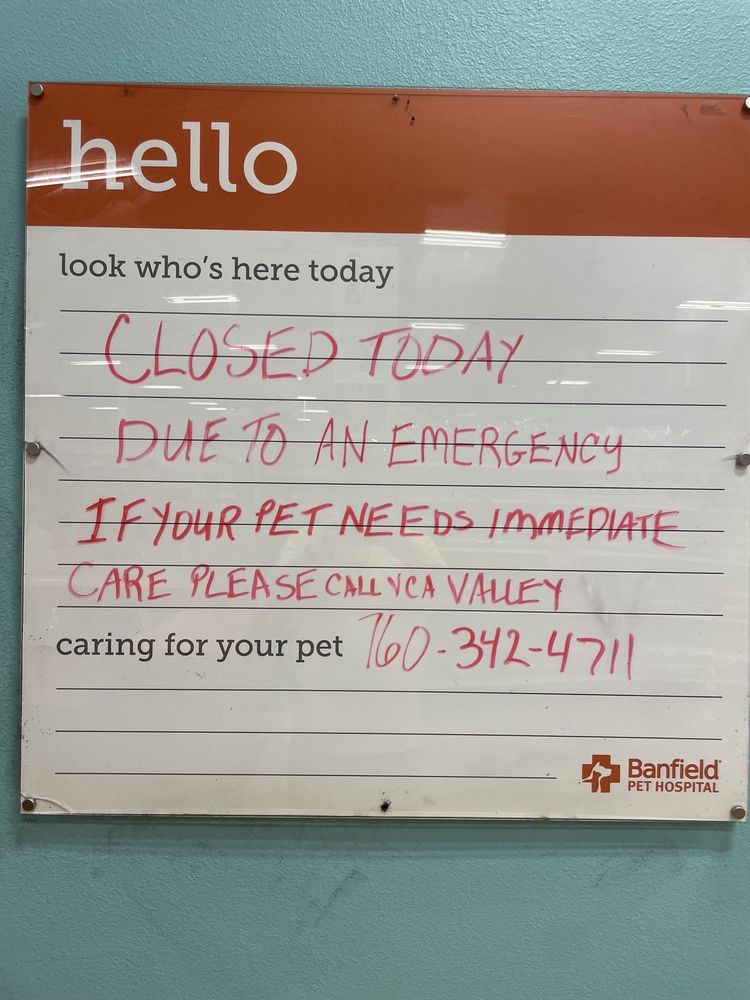 hello
look who's here today
CLOSED TODAY
DUE TO AN EMERGENCY
IF YOUR PET NEEDS IMMEDIATE
CARE PLEASE CALL VCA VALLEY
caring for your pet 760-342-4711
Banfield
PET HOSPITAL